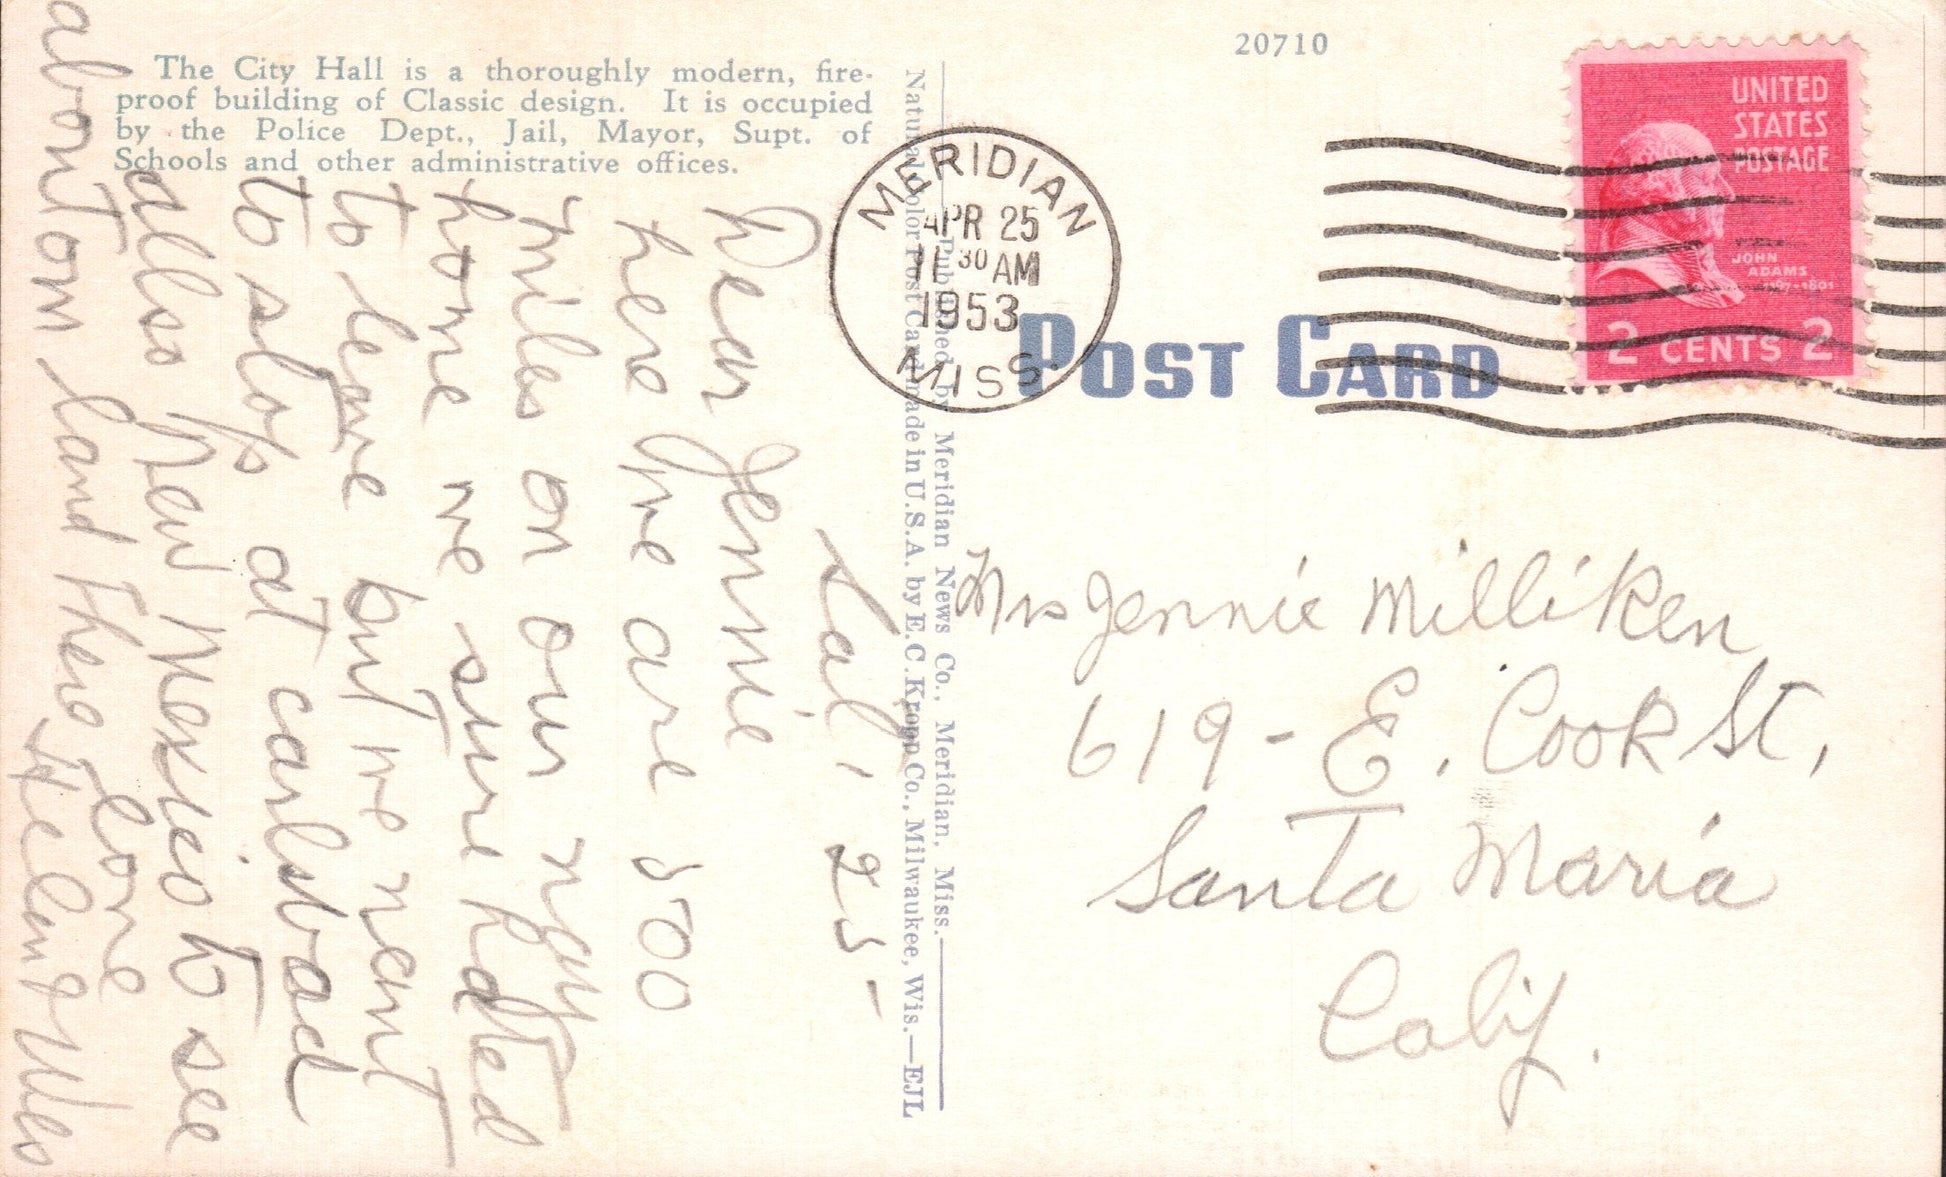 20710
The City Hall is a thoroughly modern, fire-
proof building of Classic design. It is occupied
by the Police Dept., Jail, Mayor, Supt. of
Schools and other administrative offices.
MERIDIAN
APR 25
11 30 AM
1953
MISS.
UNITED
STATES
POSTAGE
JOHN
ADAMS
1797-1801
2 CENTS 2
POST CARD
Published by Meridian News Co., Meridian, Miss.
Natural Color Post Card made in U.S.A. by E. C. Kropp Co., Milwaukee, Wis.—EJL
Sat, 25-
Dear Jennie
here we are 500
miles on our way
home we sure hated
to leave but we want
to stop at carlsbad
allso New Mexico to see
about our land there
love
Mrs Jennie Milliken
619 - E. Cook St,
Santa Maria
Calif.